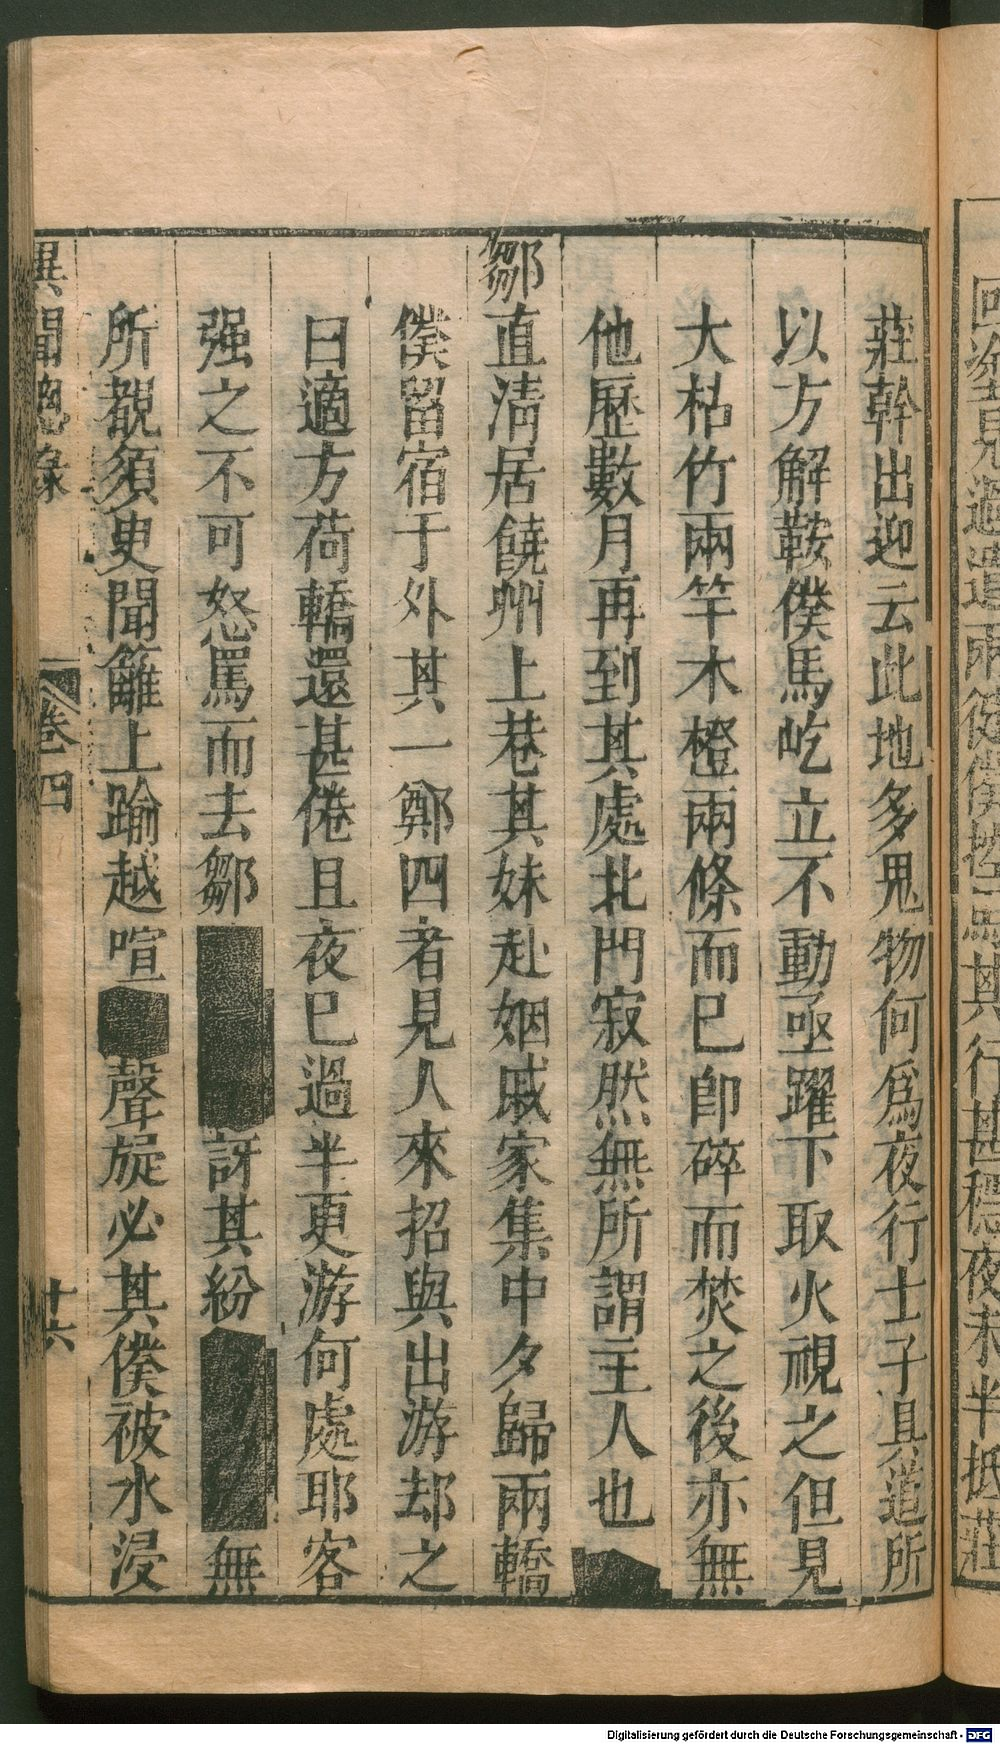 國參見過遣兩從僕控馬其行甚穩夜未半抵莊
莊幹出迎云此地多鬼物何爲夜行士子具道所
以方解鞍僕馬屹立不動亟躍下取火視之但見
大枯竹兩竿木橙兩條而已卽碎而焚之後亦無
他歷數月再到其處北門寂然無所謂主人也
鄒直淸居饒州上巷其妹赴姻戚家集中夕歸兩轎
僕留宿于外其一鄭四者見人來招與出游却之
曰適方荷轎還甚倦且夜已過半更游何處耶客
强之不可怒罵而去鄒訝其紛無
所覩須臾聞籬上踰越喧聲旋必其僕被水浸
異聞總錄 卷四 十六
Digitalisierung gefördert durch die Deutsche Forschungsgemeinschaft - DFG